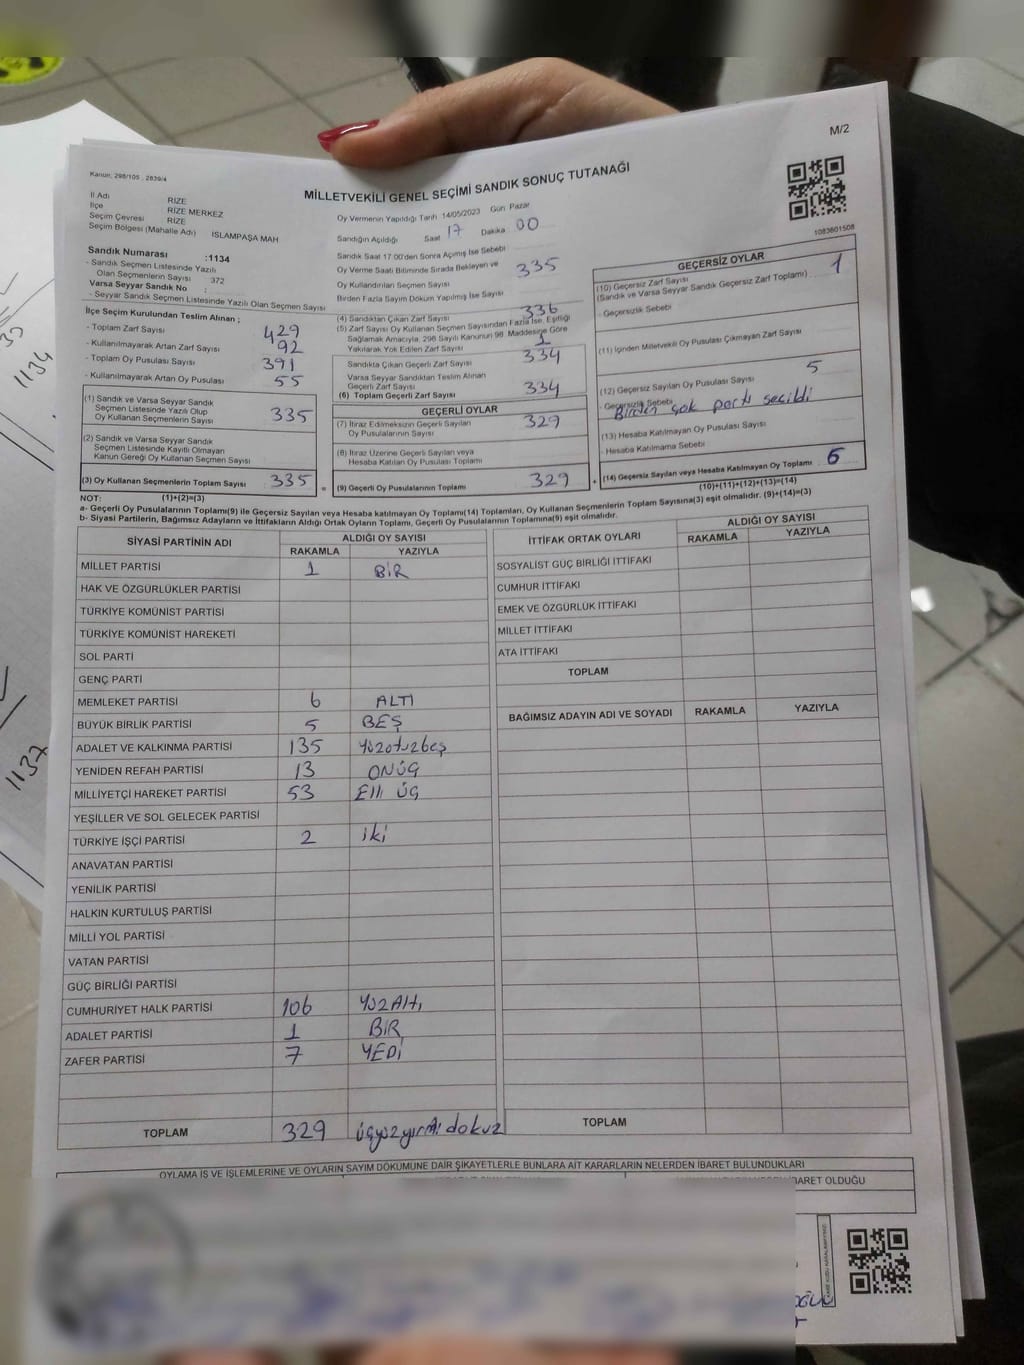 M/2
Kanun, 298/105 , 2839/4
MİLLETVEKİLİ GENEL SEÇİMİ SANDIK SONUÇ TUTANAĞI
1083601508
İl Adı RİZE
İlçe RİZE MERKEZ
Seçim Çevresi RİZE
Seçim Bölgesi (Mahalle Adı) İSLAMPAŞA MAH
Oy Vermenin Yapıldığı Tarih 14/05/2023 Gün Pazar
Sandığın Açıldığı Saat 17 Dakika 00
Sandık Saat 17:00'den Sonra Açımış İse Sebebi
Oy Verme Saati Bitiminde Sırada Bekleyen ve
Oy Kullandırılan Seçmen Sayısı 335
Birden Fazla Sayım Döküm Yapılmış İse Sayısı
Sandık Numarası :1134
- Sandık Seçmen Listesinde Yazılı
Olan Seçmenlerin Sayısı 372
Varsa Seyyar Sandık No :
- Seyyar Sandık Seçmen Listesinde Yazılı Olan Seçmen Sayısı
İlçe Seçim Kurulundan Teslim Alınan ;
- Toplam Zarf Sayısı 429
- Kullanılmayarak Artan Zarf Sayısı 92
- Toplam Oy Pusulası Sayısı 391
- Kullanılmayarak Artan Oy Pusulası 55
(1) Sandık ve Varsa Seyyar Sandık
Seçmen Listesinde Yazılı Olup
Oy Kullanan Seçmenlerin Sayısı 335
(2) Sandık ve Varsa Seyyar Sandık
Seçmen Listesinde Kayıtlı Olmayan
Kanun Gereği Oy Kullanan Seçmen Sayısı
(3) Oy Kullanan Seçmenlerin Toplam Sayısı 335
(1)+(2)=(3)
(4) Sandıktan Çıkan Zarf Sayısı 336
(5) Zarf Sayısı Oy Kullanan Seçmen Sayısından Fazla İse, Eşitliği
Sağlamak Amacıyla, 298 Sayılı Kanunun 98. Maddesine Göre
Yakılarak Yok Edilen Zarf Sayısı 1
Sandıkta Çıkan Geçerli Zarf Sayısı 334
Varsa Seyyar Sandıktan Teslim Alınan
Geçerli Zarf Sayısı
(6) Toplam Geçerli Zarf Sayısı 334
GEÇERLİ OYLAR
(7) İtiraz Edilmeksizin Geçerli Sayılan
Oy Pusulasının Sayısı 329
(8) İtiraz Üzerine Geçerli Sayılan veya
Hesaba Katılan Oy Pusulası Toplamı
= (9) Geçerli Oy Pusulalarının Toplamı 329
GEÇERSİZ OYLAR
(10) Geçersiz Zarf Sayısı
(Sandık ve Varsa Seyyar Sandık Geçersiz Zarf Toplamı) 1
- Geçersizlik Sebebi
(11) İçinden Milletvekili Oy Pusulası Çıkmayan Zarf Sayısı
(12) Geçersiz Sayılan Oy Pusulası Sayısı 5
- Geçersizlik Sebebi Birden çok parti seçildi
(13) Hesaba Katılmayan Oy Pusulası Sayısı
- Hesaba Katılmama Sebebi
+ (14) Geçersiz Sayılan veya Hesaba Katılmayan Oy Toplamı 6
(10)+(11)+(12)+(13)=(14)
NOT:
a- Geçerli Oy Pusulalarının Toplamı(9) ile Geçersiz Sayılan veya Hesaba Katılmayan Oy Toplamı(14) Toplamları, Oy Kullanan Seçmenlerin Toplam Sayısına(3) eşit olmalıdır. (9)+(14)=(3)
b- Siyasi Partilerin, Bağımsız Adayların ve İttifakların Aldığı Ortak Oyların Toplamı, Geçerli Oy Pusulalarının Toplamına(9) eşit olmalıdır.
SİYASİ PARTİNİN ADI ALDIĞI OY SAYISI
RAKAMLA YAZIYLA
MİLLET PARTİSİ 1 BİR
HAK VE ÖZGÜRLÜKLER PARTİSİ
TÜRKİYE KOMÜNİST PARTİSİ
TÜRKİYE KOMÜNİST HAREKETİ
SOL PARTİ
GENÇ PARTİ
MEMLEKET PARTİSİ 6 ALTI
BÜYÜK BİRLİK PARTİSİ 5 BEŞ
ADALET VE KALKINMA PARTİSİ 135 Yüzotuzbeş
YENİDEN REFAH PARTİSİ 13 ONÜÇ
MİLLİYETÇİ HAREKET PARTİSİ 53 Elli üç
YEŞİLLER VE SOL GELECEK PARTİSİ
TÜRKİYE İŞÇİ PARTİSİ 2 iki
ANAVATAN PARTİSİ
YENİLİK PARTİSİ
HALKIN KURTULUŞ PARTİSİ
MİLLİ YOL PARTİSİ
VATAN PARTİSİ
GÜÇ BİRLİĞİ PARTİSİ
CUMHURİYET HALK PARTİSİ 106 YüzAltı
ADALET PARTİSİ 1 BİR
ZAFER PARTİSİ 7 YEDİ
TOPLAM 329 üçyüzyirmi dokuz
İTTİFAK ORTAK OYLARI ALDIĞI OY SAYISI
RAKAMLA YAZIYLA
SOSYALİST GÜÇ BİRLİĞİ İTTİFAKI
CUMHUR İTTİFAKI
EMEK VE ÖZGÜRLÜK İTTİFAKI
MİLLET İTTİFAKI
ATA İTTİFAKI
TOPLAM
BAĞIMSIZ ADAYIN ADI VE SOYADI RAKAMLA YAZIYLA
TOPLAM
OYLAMA İŞ VE İŞLEMLERİNE VE OYLARIN SAYIM DÖKÜMÜNE DAİR ŞİKAYETLERLE BUNLARA AİT KARARLARIN NELERDEN İBARET BULUNDUKLARI
İBARET OLDUĞU
1134
1137